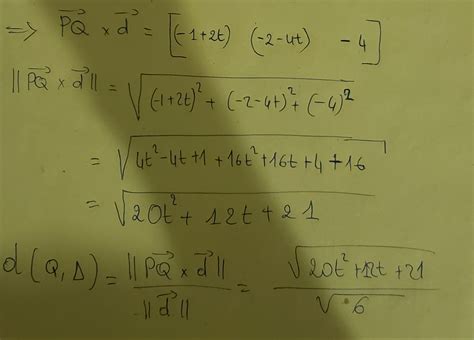 ⇒ \overrightarrow{PQ} × \vec{d} = [(-1+2t) (-2-4t) -4]
||\overrightarrow{PQ} × \vec{d}|| = √((-1+2t)² + (-2-4t)² + (-4)²)
= √(4t²-4t+1+16t²+16t+4+16)
= √(20t² + 12t + 21)
d(Q,Δ) = ||\overrightarrow{PQ} × \vec{d}|| / ||\vec{d}|| = √(20t²+12t+21) / √6